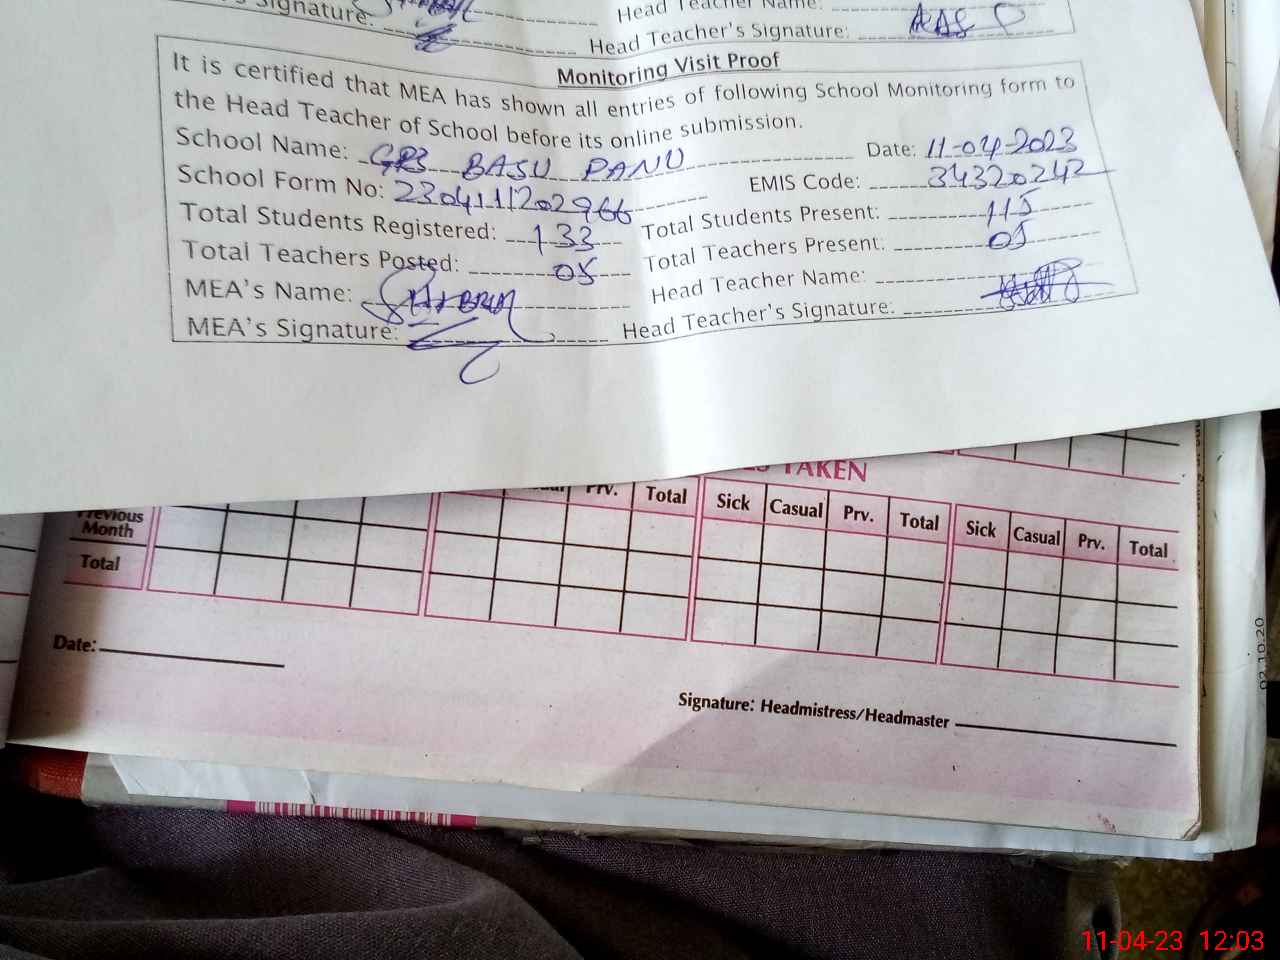 's Signature: Head Teacher Name:
Head Teacher's Signature:
Monitoring Visit Proof
It is certified that MEA has shown all entries of following School Monitoring form to
the Head Teacher of School before its online submission.
School Name: BASU PANU Date: 11-04-2023
School Form No: 230411202966 EMIS Code: 34320242
Total Students Registered: 133 Total Students Present: 115
Total Teachers Posted: 05 Total Teachers Present: 05
MEA's Name: Head Teacher Name:
MEA's Signature: Head Teacher's Signature:
TAKEN
Prv. Total Sick Casual Prv. Total Sick Casual Prv. Total
Previous
Month
Total
Date:
Signature: Headmistress/Headmaster
02.10.20
11-04-23 12:03